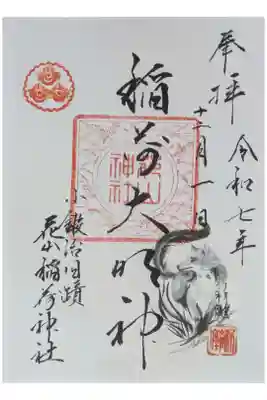 奉拝
令和七年
十二月一日
稲荷大明神
小鍛冶旧蹟
花山稲荷神社